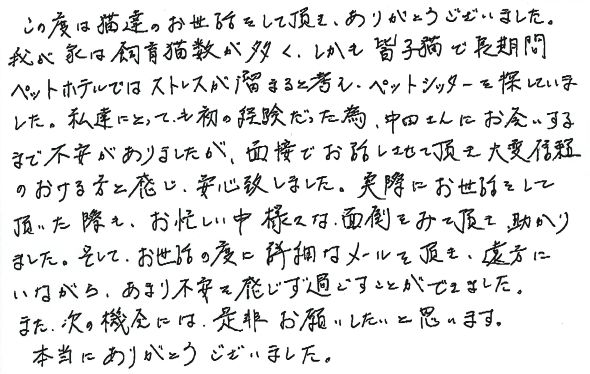 この度は猫達のお世話をして頂き、ありがとうございました。
我が家は飼育猫数が多く、しかも皆子猫で長期間
ペットホテルではストレスが溜まると考え、ペットシッターを探していま
した。私達にとっても初の経験だった為、中田さんにお会いする
まで不安がありましたが、面接でお話しさせて頂き大変信頼
のおける方と感じ、安心致しました。実際にお世話をして
頂いた際も、お忙しい中様々な面倒をみて頂き、助かり
ました。そして、お世話の度に詳細なメールを頂き、遠方に
いながら、あまり不安を感じず過ごすことができました。
また、次の機会には、是非お願いしたいと思います。
本当にありがとうございました。